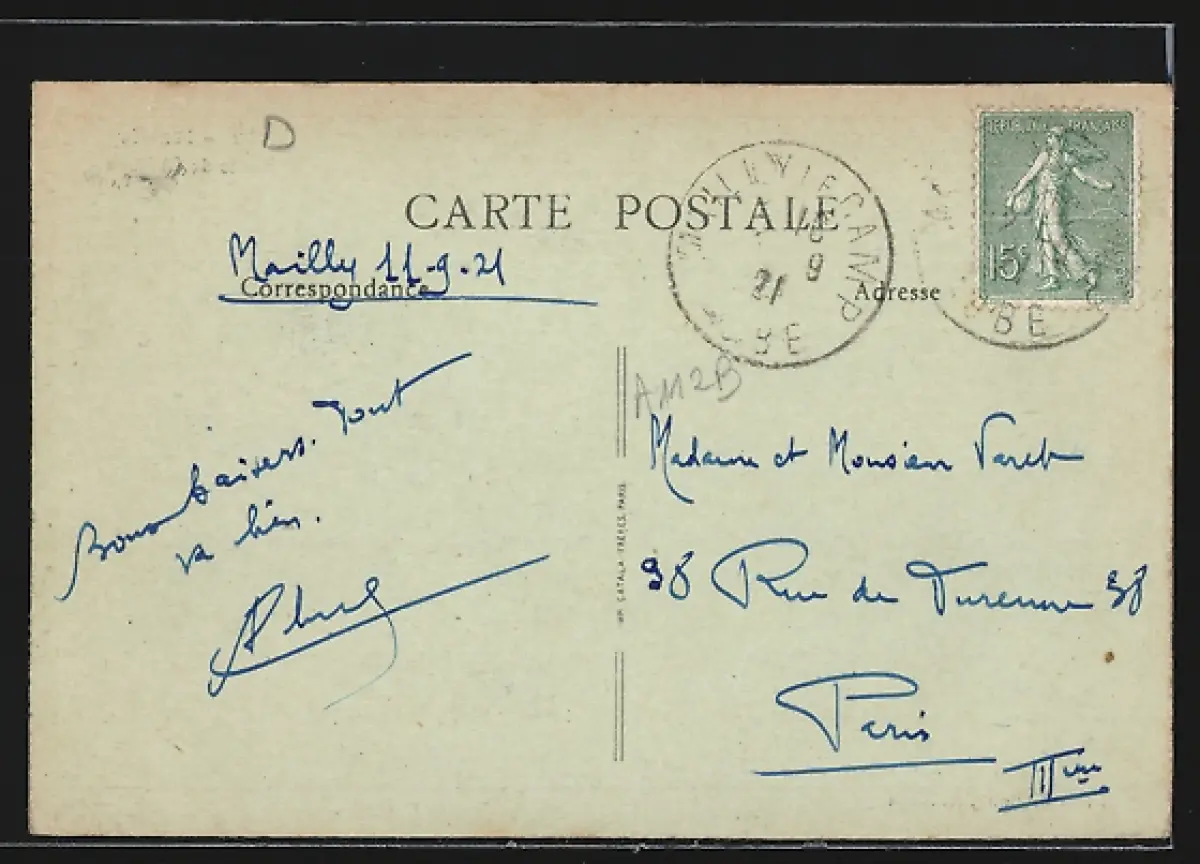 D
CARTE POSTALE
REPUBLIQUE FRANÇAISE
15c
MAILLY LE CAMP
18
9
21
BE
BE
Mailly 11-9-21
Correspondance
Adresse
AM2B
Bons baisers. Tout
va bien.
Madame et Monsieur Varet
98 Rue de Turenne 98
Paris
III ème
IMP. CATALA FRÈRES, PARIS